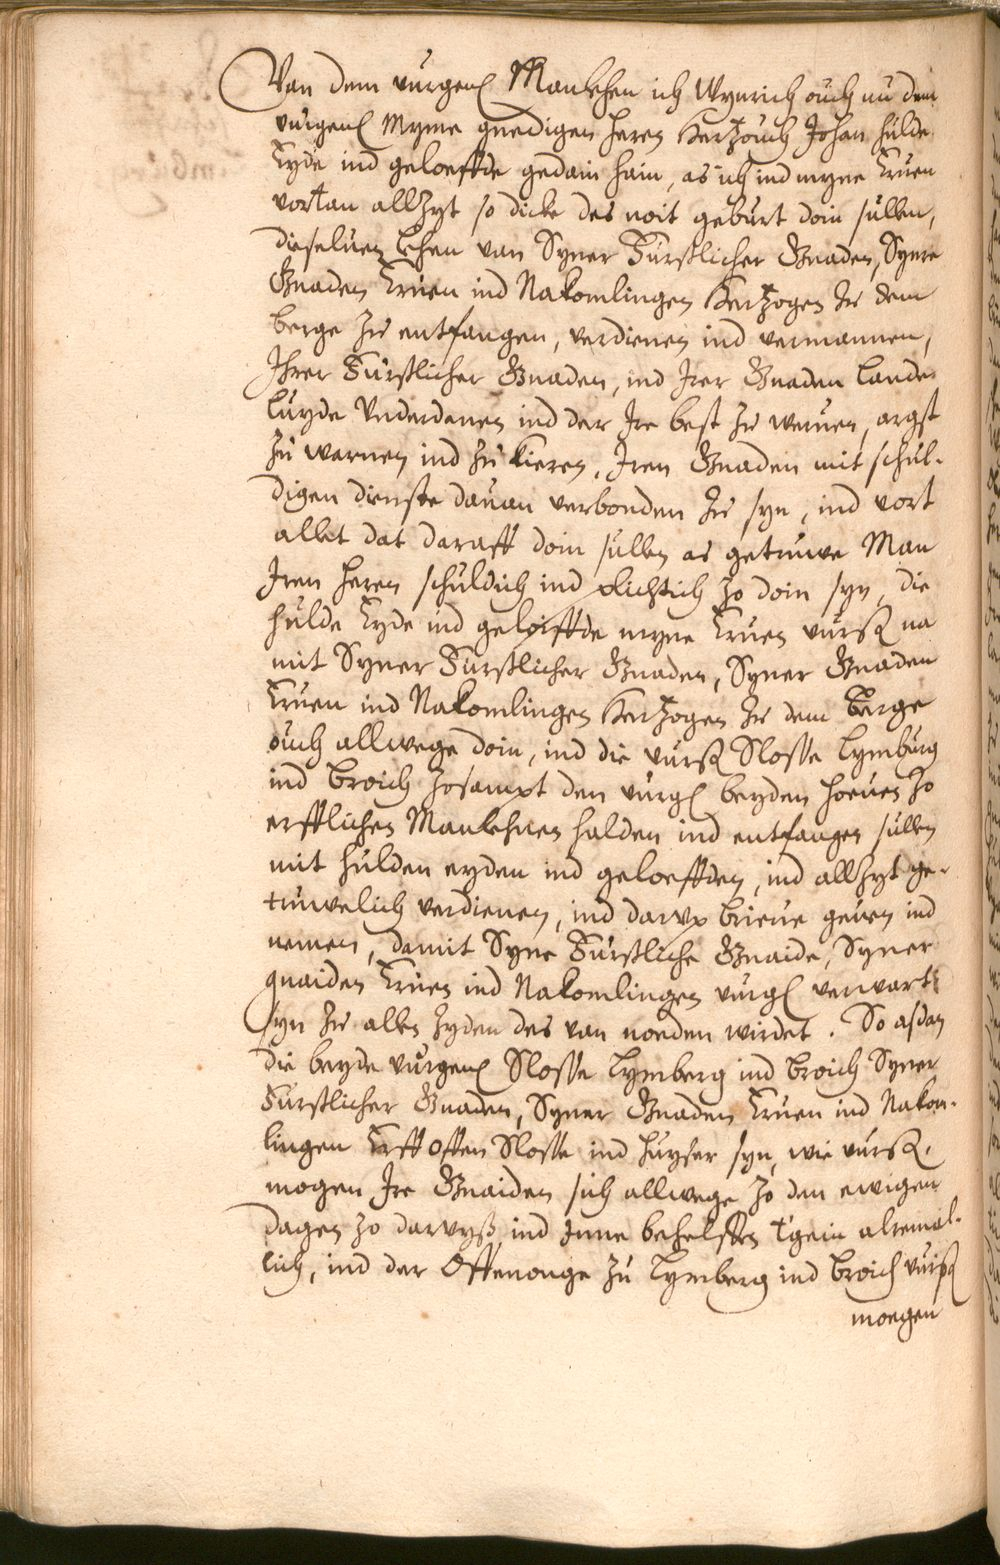 Van dem vurgen. Manlehen ich Wynrich ouch nu dem
vurgen. Myme gnedigen heren Hertzouch Johan hulde
Eyde ind geloeffde gedain hain, as ich ind myne Eruen
vortan allzyt so dicke des noit geburt doin sullen,
dieseluen Lehen van Syner Fürstlicher Gnaden, Synre
Gnaden Eruen ind Nakomlingen Hertzogen zu dem
berge zu entfangen, verdienen ind vermannen,
Ihrer Fürstlicher Gnaden, ind Irer Gnaden Lande,
Luyde Vnderdanen ind der Ire best zu weruen, argst
zu warnen ind zu kieren, Iren Gnaden mit schul-
digen dienste dauan verbonden zu syn, ind vort
allet dat daraff doin sullen as getruwe Man
Iren heren schuldich ind plichtich zo doin syn, die
hulde Eyde ind geloiffde myne Eruen vurß na
mit Syner Furstlicher Gnaden, Syner Gnaden
Eruen ind Nakomlingen Hertzogen zu dem Berge
ouch allwege doin, ind die vurß Slosse Lymburg
ind Broich zosampt den vurg. beyden hoeuen zo
erfflichen Manlehnen halden ind entfangen sullen
mit hulden eyden ind geloeffden, ind allzyt ge-
truwelich verdienen, ind darvp brieue geuen ind
nemen, damit Syne Fürstliche Gnaide, Syner
gnaiden Eruen ind Nakomlingen vurg. verwart
syn zu allen zyden des van noeden wirdet. So asdan
die beyde vurgen. Slosse Lymberg ind Broich Syner
Fürstlicher Gnaden, Syner Gnaden Eruen ind Nakom-
lingen Erff Offen Slosse ind huyser syn, wie vurß,
mogen Ire Gnaiden sich allwege zo den ewigen
dagen zo darvyß ind Inne behelffen t'gein alremal-
lich, ind der Offenonge zu Lymberg ind Broich vurß
moegen